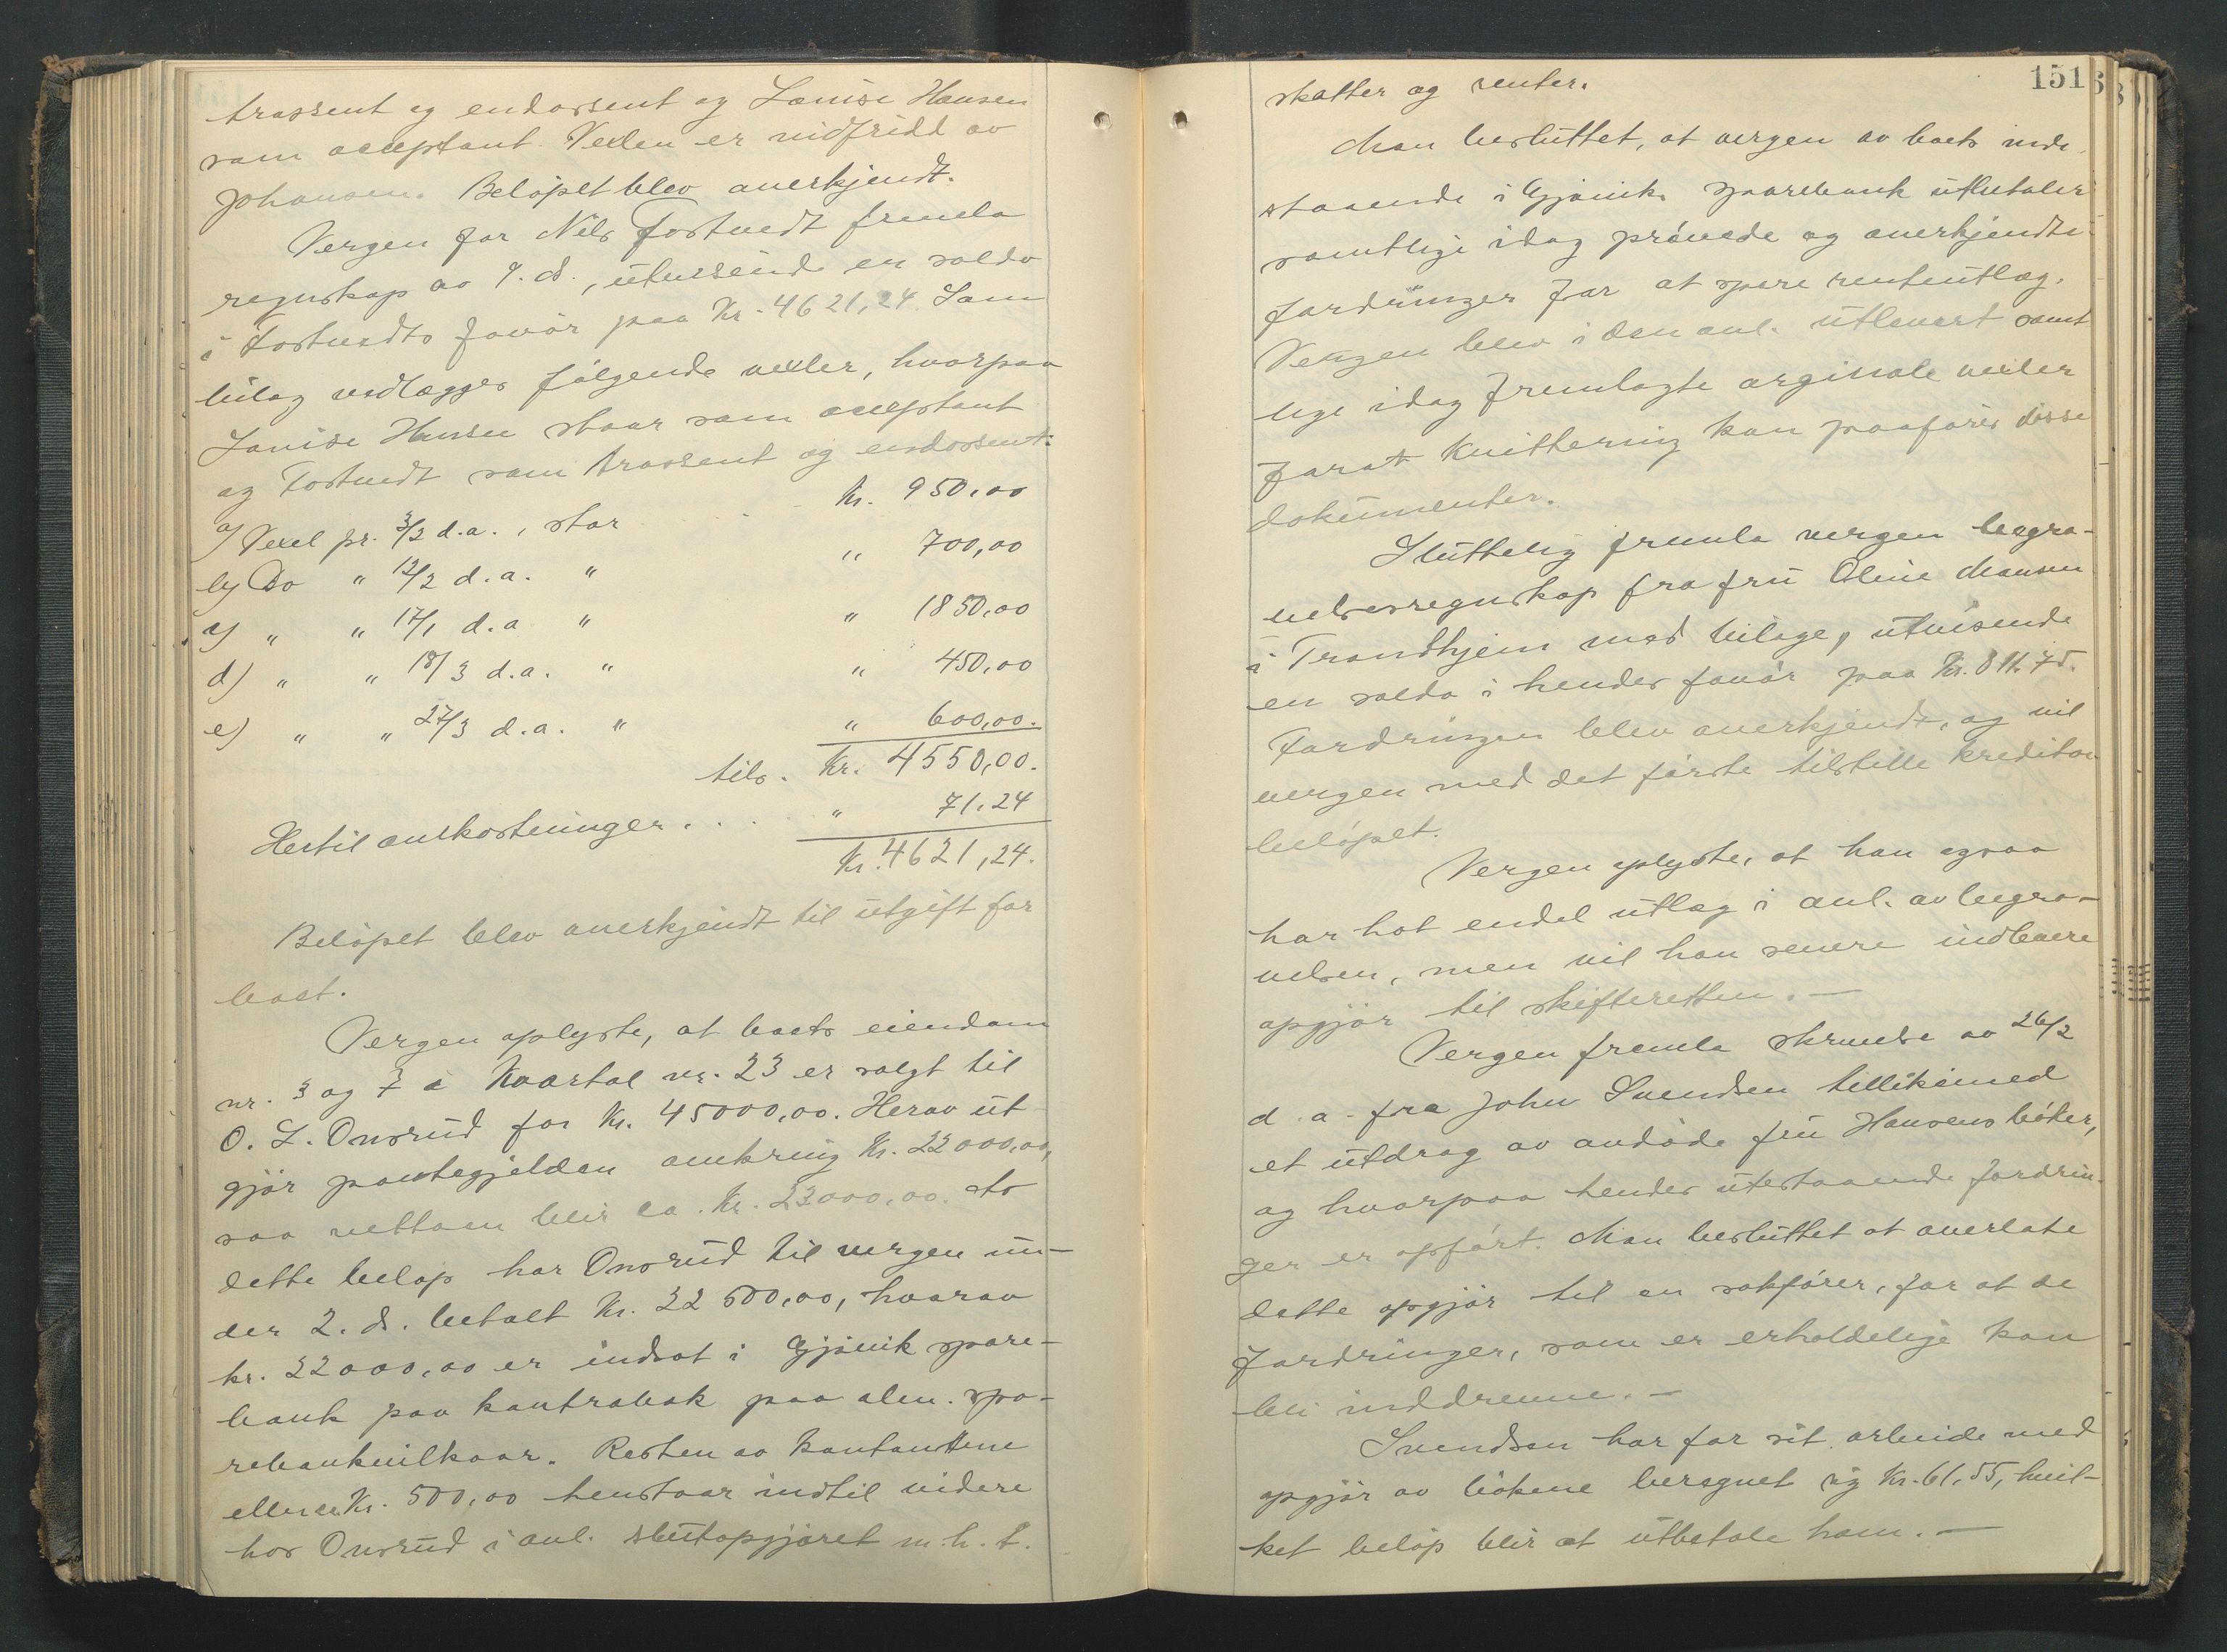 trassent og endorsent og Louise Hansen
som acceptant. Vexlen er indfridd av
Johansen. Beløpet blev anerkjendt.
Vergen for Nils Tostvedt fremla
regnskap av 9. ds., utvisende en saldo
i Tostvedts favør paa Kr. 4621,24. Som
bilag vedlægges følgende vexler, hvorpaa
Louise Hansen staar som acceptant
og Tostvedt som trassent og endorsent:
a) Vexel pr. 3/2 d.a., stor Kr. 950,00
b) Do " 12/2 d.a. " " 700,00
c) " " 17/1 d.a " " 1850,00
d) " " 18/3 d.a. " " 450,00
e) " " 27/3 d.a. " " 600,00.
tils. Kr. 4550,00.
Hertil omkostninger . . . . " 71.24
Kr. 4621,24.
Beløpet blev anerkjendt til utgift for
boet.
Vergen oplyste, at boets eiendom
nr. 3 og 7 i Kvartal nr. 23 er solgt til
O. L. Onsrud for Kr. 45000,00. Herav ut-
gjør pantegjelden omkring Kr. 22000,00,
saa nettoen blir ca. Kr. 23000,00. Av
dette beløp har Onsrud til vergen un-
der 2. ds. betalt Kr. 22500,00, hvorav
kr. 22000,00 er indsat i Gjøvik spare-
bank paa kontrabok paa alm. spa-
rebankvilkaar. Resten av kontantene
eller ca. Kr. 500,00 henstaar indtil videre
hos Onsrud i anl. sluttopgjøret m.h.t.
151
skatter og renter.
Man besluttet, at vergen av boets inde-
staaende i Gjøviks sparebank utbetaler
samtlige idag prøvede og anerkjendte
fordringer for at spare renteutlæg.
Vergen blev i den anl. utlevert samt
lige idag fremlagte orginale vexler
forat kvittering kan paaføres disse
dokumenter.
Sluttelig fremla vergen begra-
velsesregnskap fra fru Oline Mansen
i Trondhjem med bilage, utvisende
en saldo i hendes favør paa Kr. 811.75.
Fordringen blev anerkjendt, og vil
vergen med det første tilstille kreditor
beløpet.
Vergen oplyste, at han ogsaa
har hat endel utlæg i anl. av begra-
velsen, men vil han senere indlevere
opgjør til skifteretten. —
Vergen fremla skrivelse av 26/2
d. a. fra John Svendsen tillikemed
et utdrag av avdøde fru Hansens bøker,
og hvorpaa hendes utestaaende fordrin-
ger er opført. Man besluttet at overlate
dette opgjør til en sakfører, for at de
fordringer, som er erholdelige kan
bli inddrevne. —
Svendsen har for sit arbeide med
opgjør av bøkene beregnet sig Kr. 61,55, hvil-
ket beløp blir at utbetale ham. —